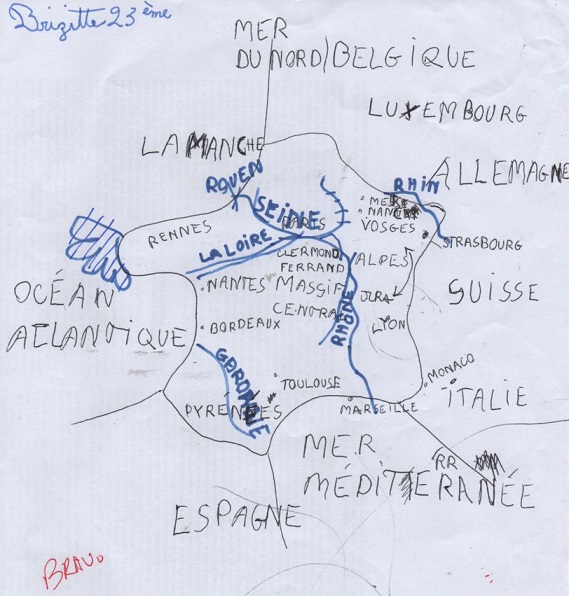 Brigitte 23ème
MER
DU NORD/BELGIQUE
LUXEMBOURG
LA MANCHE
ALLEMAGNE
ROUEN
RHIN
SEINE
PARIS
NANCY
VOSGES
RENNES
STRASBOURG
LA LOIRE
CLERMOND
FERRAND
ALPES
OCÉAN
ATLANTIQUE
NANTES
MASSIF
CENTRAL
JURA
SUISSE
RHÔNE
LYON
BORDEAUX
GARONNE
TOULOUSE
MONACO
ITALIE
PYRÉNÉES
MARSEILLE
MER
RR
MÉDITERANÉE
ESPAGNE
BRAVO